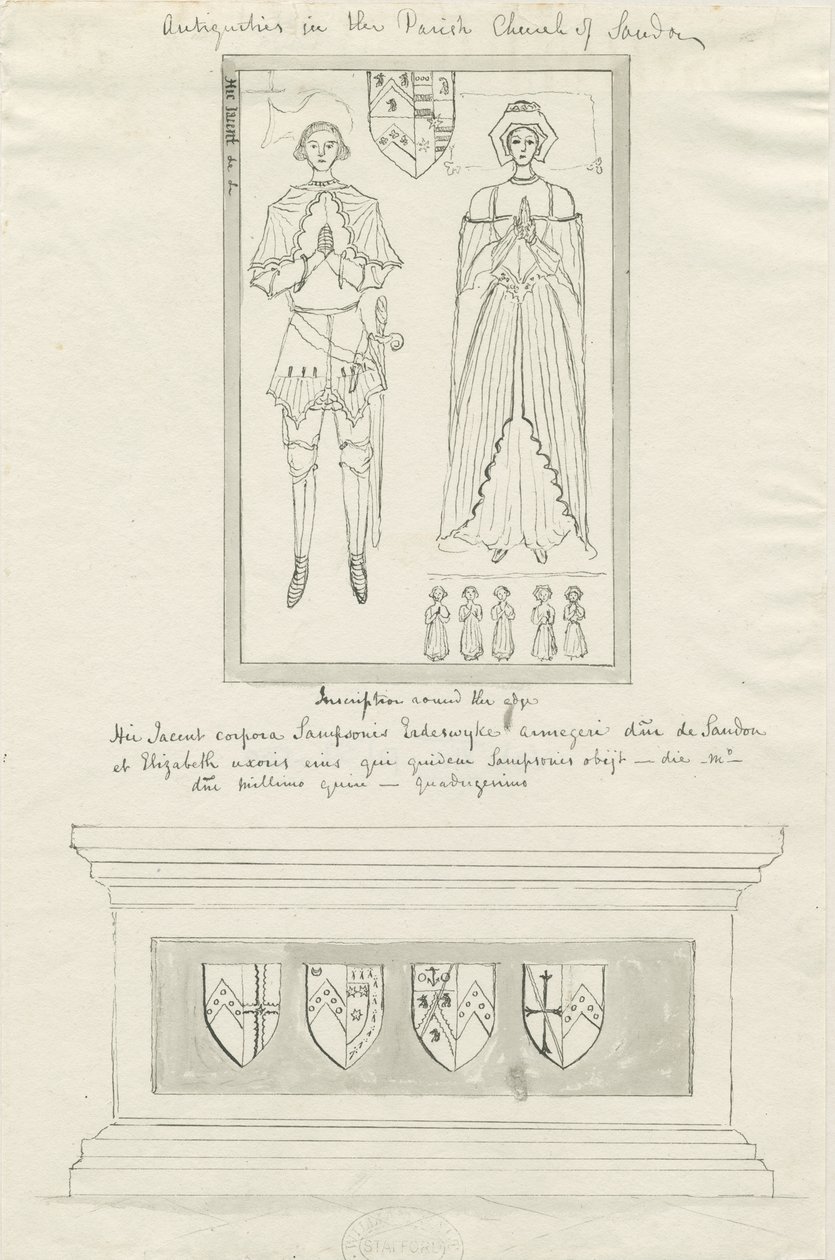 Antiquities in the Parish Church of Sandon
Hic Jacent de de
Inscription round the edge
Hic Jacent corpora Sampsonis Erdeswyke armegeri dñi de Sandon
et Elizabeth uxoris eius qui quidem Sampsonis obijt — die — mº —
dñi Millimo quin — quadragesimo
STAFFORD